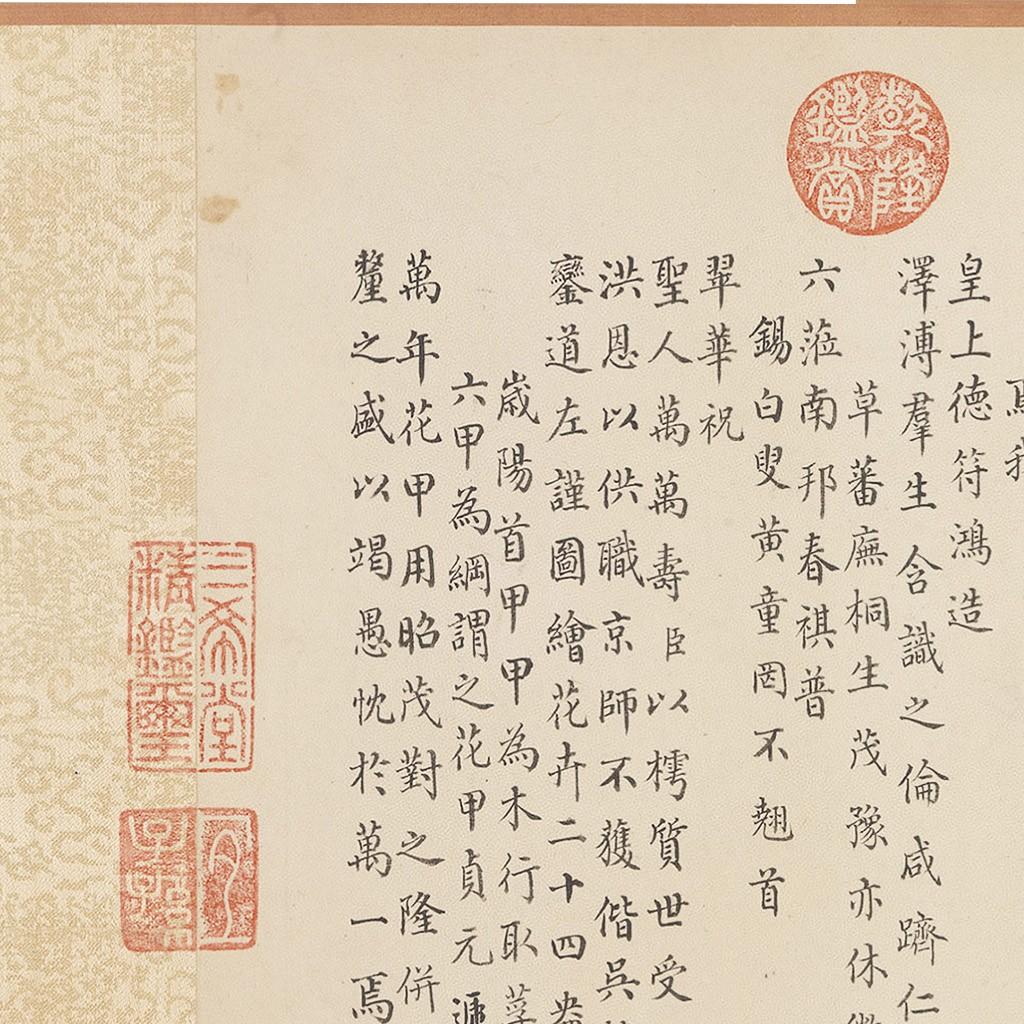 乾隆鑑賞
皇上德符鴻造
澤溥羣生含識之倫咸躋仁
草蕃廡桐生茂豫亦休
六蒞南邦春祺普
錫白叟黄童罔不翹首
翠華祝
聖人萬萬壽臣以樗質世受
洪恩以供職京師不獲偕吳
鑾道左謹圖繪花卉二十四
歲陽首甲甲為木行取莩
六甲為綱謂之花甲貞元遞
萬年花甲用昭茂對之隆併
釐之盛以竭愚忱於萬一焉
三希堂
精鑑璽
宜
子孫